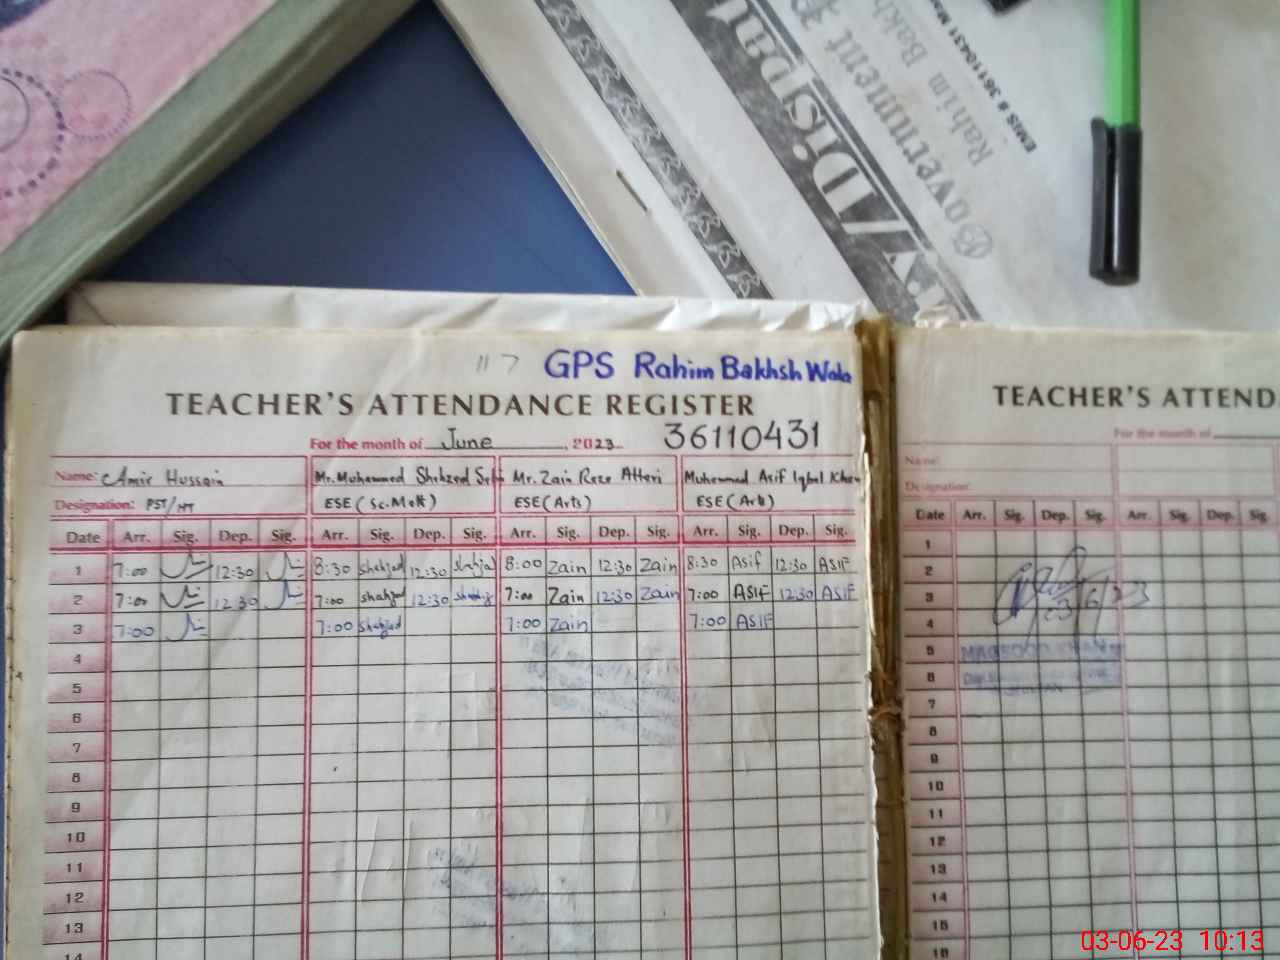 /Dispat
Government P
Rahim Bakh
EMIS # 36110431
117 GPS Rahim Bakhsh Wala
TEACHER'S ATTENDANCE REGISTER
For the month of June, 2023 36110431
Name: Amir Hussain Mr. Muhammed Shahzad Mr. Zain Raza Attari Muhammad Asif Iqbal Khan
Designation: PST/HT ESE (Sc.Math) ESE (Arts) ESE (Arts)
Date Arr. Sig. Dep. Sig. Arr. Sig. Dep. Sig. Arr. Sig. Dep. Sig. Arr. Sig. Dep. Sig.
1 7:00 12:30 8:30 Shahzad 12:30 Shahzad 8:00 Zain 12:30 Zain 8:30 Asif 12:30 ASIF
2 7:00 12:30 7:00 Shahzad 12:30 Shahzad 7:00 Zain 12:30 Zain 7:00 ASIF 12:30 ASIF
3 7:00 7:00 Shahzad 7:00 Zain 7:00 ASIF
4
5
6
7
8
9
10
11
12
13
14
TEACHER'S ATTEND
For the month of
Name:
Designation:
Date Arr. Sig. Dep. Sig. Arr. Sig. Dep. Sig.
1
2
3
4
5
6
7
8
9
10
11
12
13
14
15
16
03-06-23 10:13